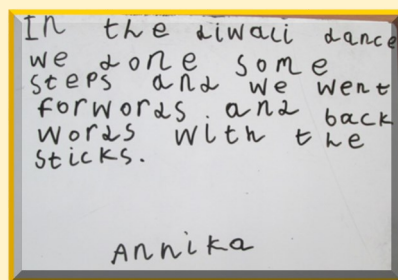 In the diwali dance
we done some
steps and we went
forwords and back
words with the
sticks.
Annika